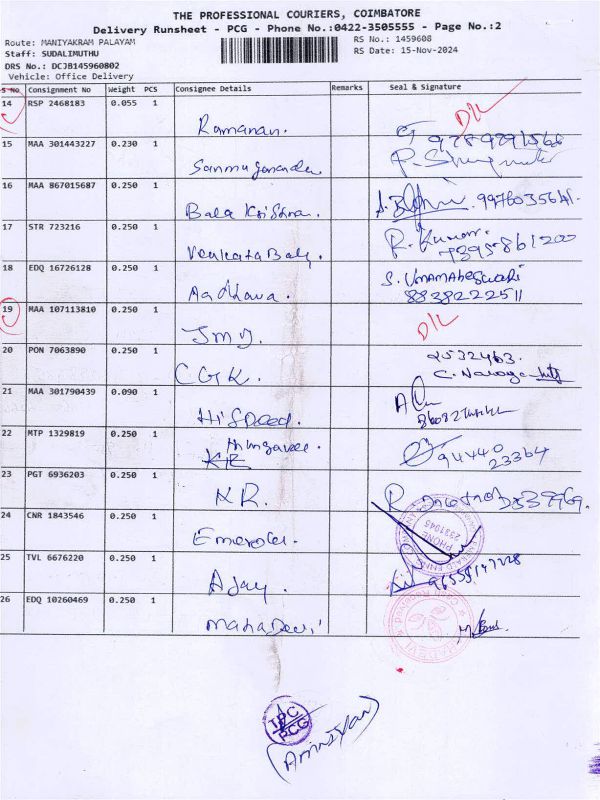 THE PROFESSIONAL COURIERS, COIMBATORE
Delivery Runsheet - PCG - Phone No.:0422-3505555 - Page No.:2
Route: MANIYAKRAM PALAYAM
RS No.: 1459608
Staff: SUDALIMUTHU
RS Date: 15-Nov-2024
DRS No.: DCJB145960802
Vehicle: Office Delivery
S No. Consignment No Weight PCS Consignee Details Remarks Seal & Signature
14 RSP 2468183 0.055 1
Ramanan.
D/L
15 MAA 301443227 0.230 1
16 MAA 867015687 0.250 1
Bala Krishna.
17 STR 723216 0.250 1
Venkata Baly.
R. Kumar.
73958-861200
18 EDQ 16726128 0.250 1
Aadhava.
S. UMAMAHESWARI
8838222511
19 MAA 107113810 0.250 1
JMJ.
D/L
20 PON 7063890 0.250 1
CGK.
2532463.
21 MAA 301790439 0.090 1
Hi Speed.
22 MTP 1329819 0.250 1
94440
23364
23 PGT 6936203 0.250 1
KR.
24 CNR 1843546 0.250 1
PHONE
2331045
25 TVL 6676220 0.250 1
Ajay.
26 EDQ 10260469 0.250 1
Maha Devi
TPC
PCG